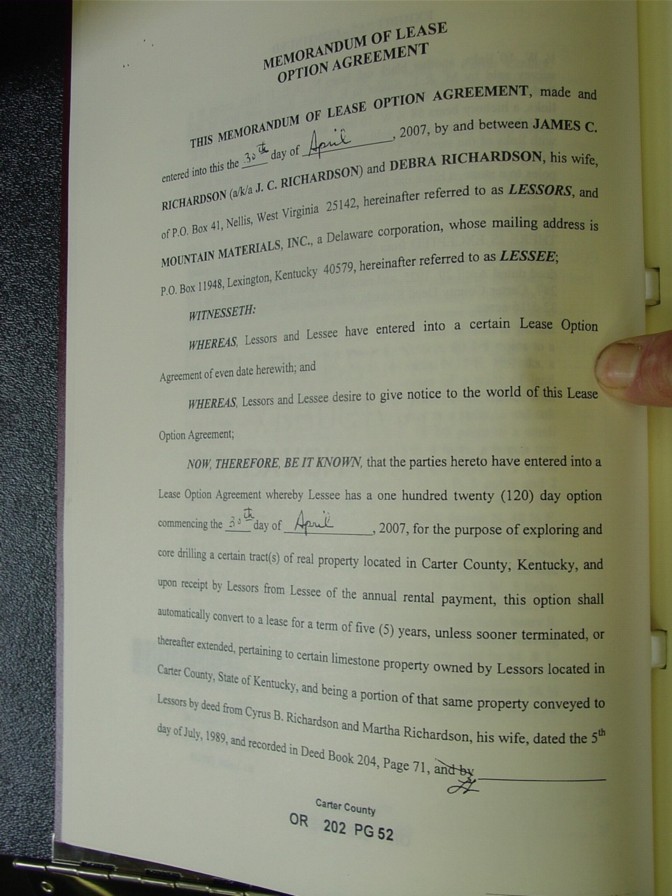 MEMORANDUM OF LEASE
OPTION AGREEMENT
THIS MEMORANDUM OF LEASE OPTION AGREEMENT, made and
entered into this the 30th day of April, 2007, by and between JAMES C.
RICHARDSON (a/k/a J. C. RICHARDSON) and DEBRA RICHARDSON, his wife,
of P.O. Box 41, Nellis, West Virginia 25142, hereinafter referred to as LESSORS, and
MOUNTAIN MATERIALS, INC., a Delaware corporation, whose mailing address is
P.O. Box 11948, Lexington, Kentucky 40579, hereinafter referred to as LESSEE;
WITNESSETH:
WHEREAS, Lessors and Lessee have entered into a certain Lease Option
Agreement of even date herewith; and
WHEREAS, Lessors and Lessee desire to give notice to the world of this Lease
Option Agreement;
NOW, THEREFORE, BE IT KNOWN, that the parties hereto have entered into a
Lease Option Agreement whereby Lessee has a one hundred twenty (120) day option
commencing the 30th day of April, 2007, for the purpose of exploring and
core drilling a certain tract(s) of real property located in Carter County, Kentucky, and
upon receipt by Lessors from Lessee of the annual rental payment, this option shall
automatically convert to a lease for a term of five (5) years, unless sooner terminated, or
thereafter extended, pertaining to certain limestone property owned by Lessors located in
Carter County, State of Kentucky, and being a portion of that same property conveyed to
Lessors by deed from Cyrus B. Richardson and Martha Richardson, his wife, dated the 5th
day of July, 1989, and recorded in Deed Book 204, Page 71, and by
Carter County
OR 202 PG 52